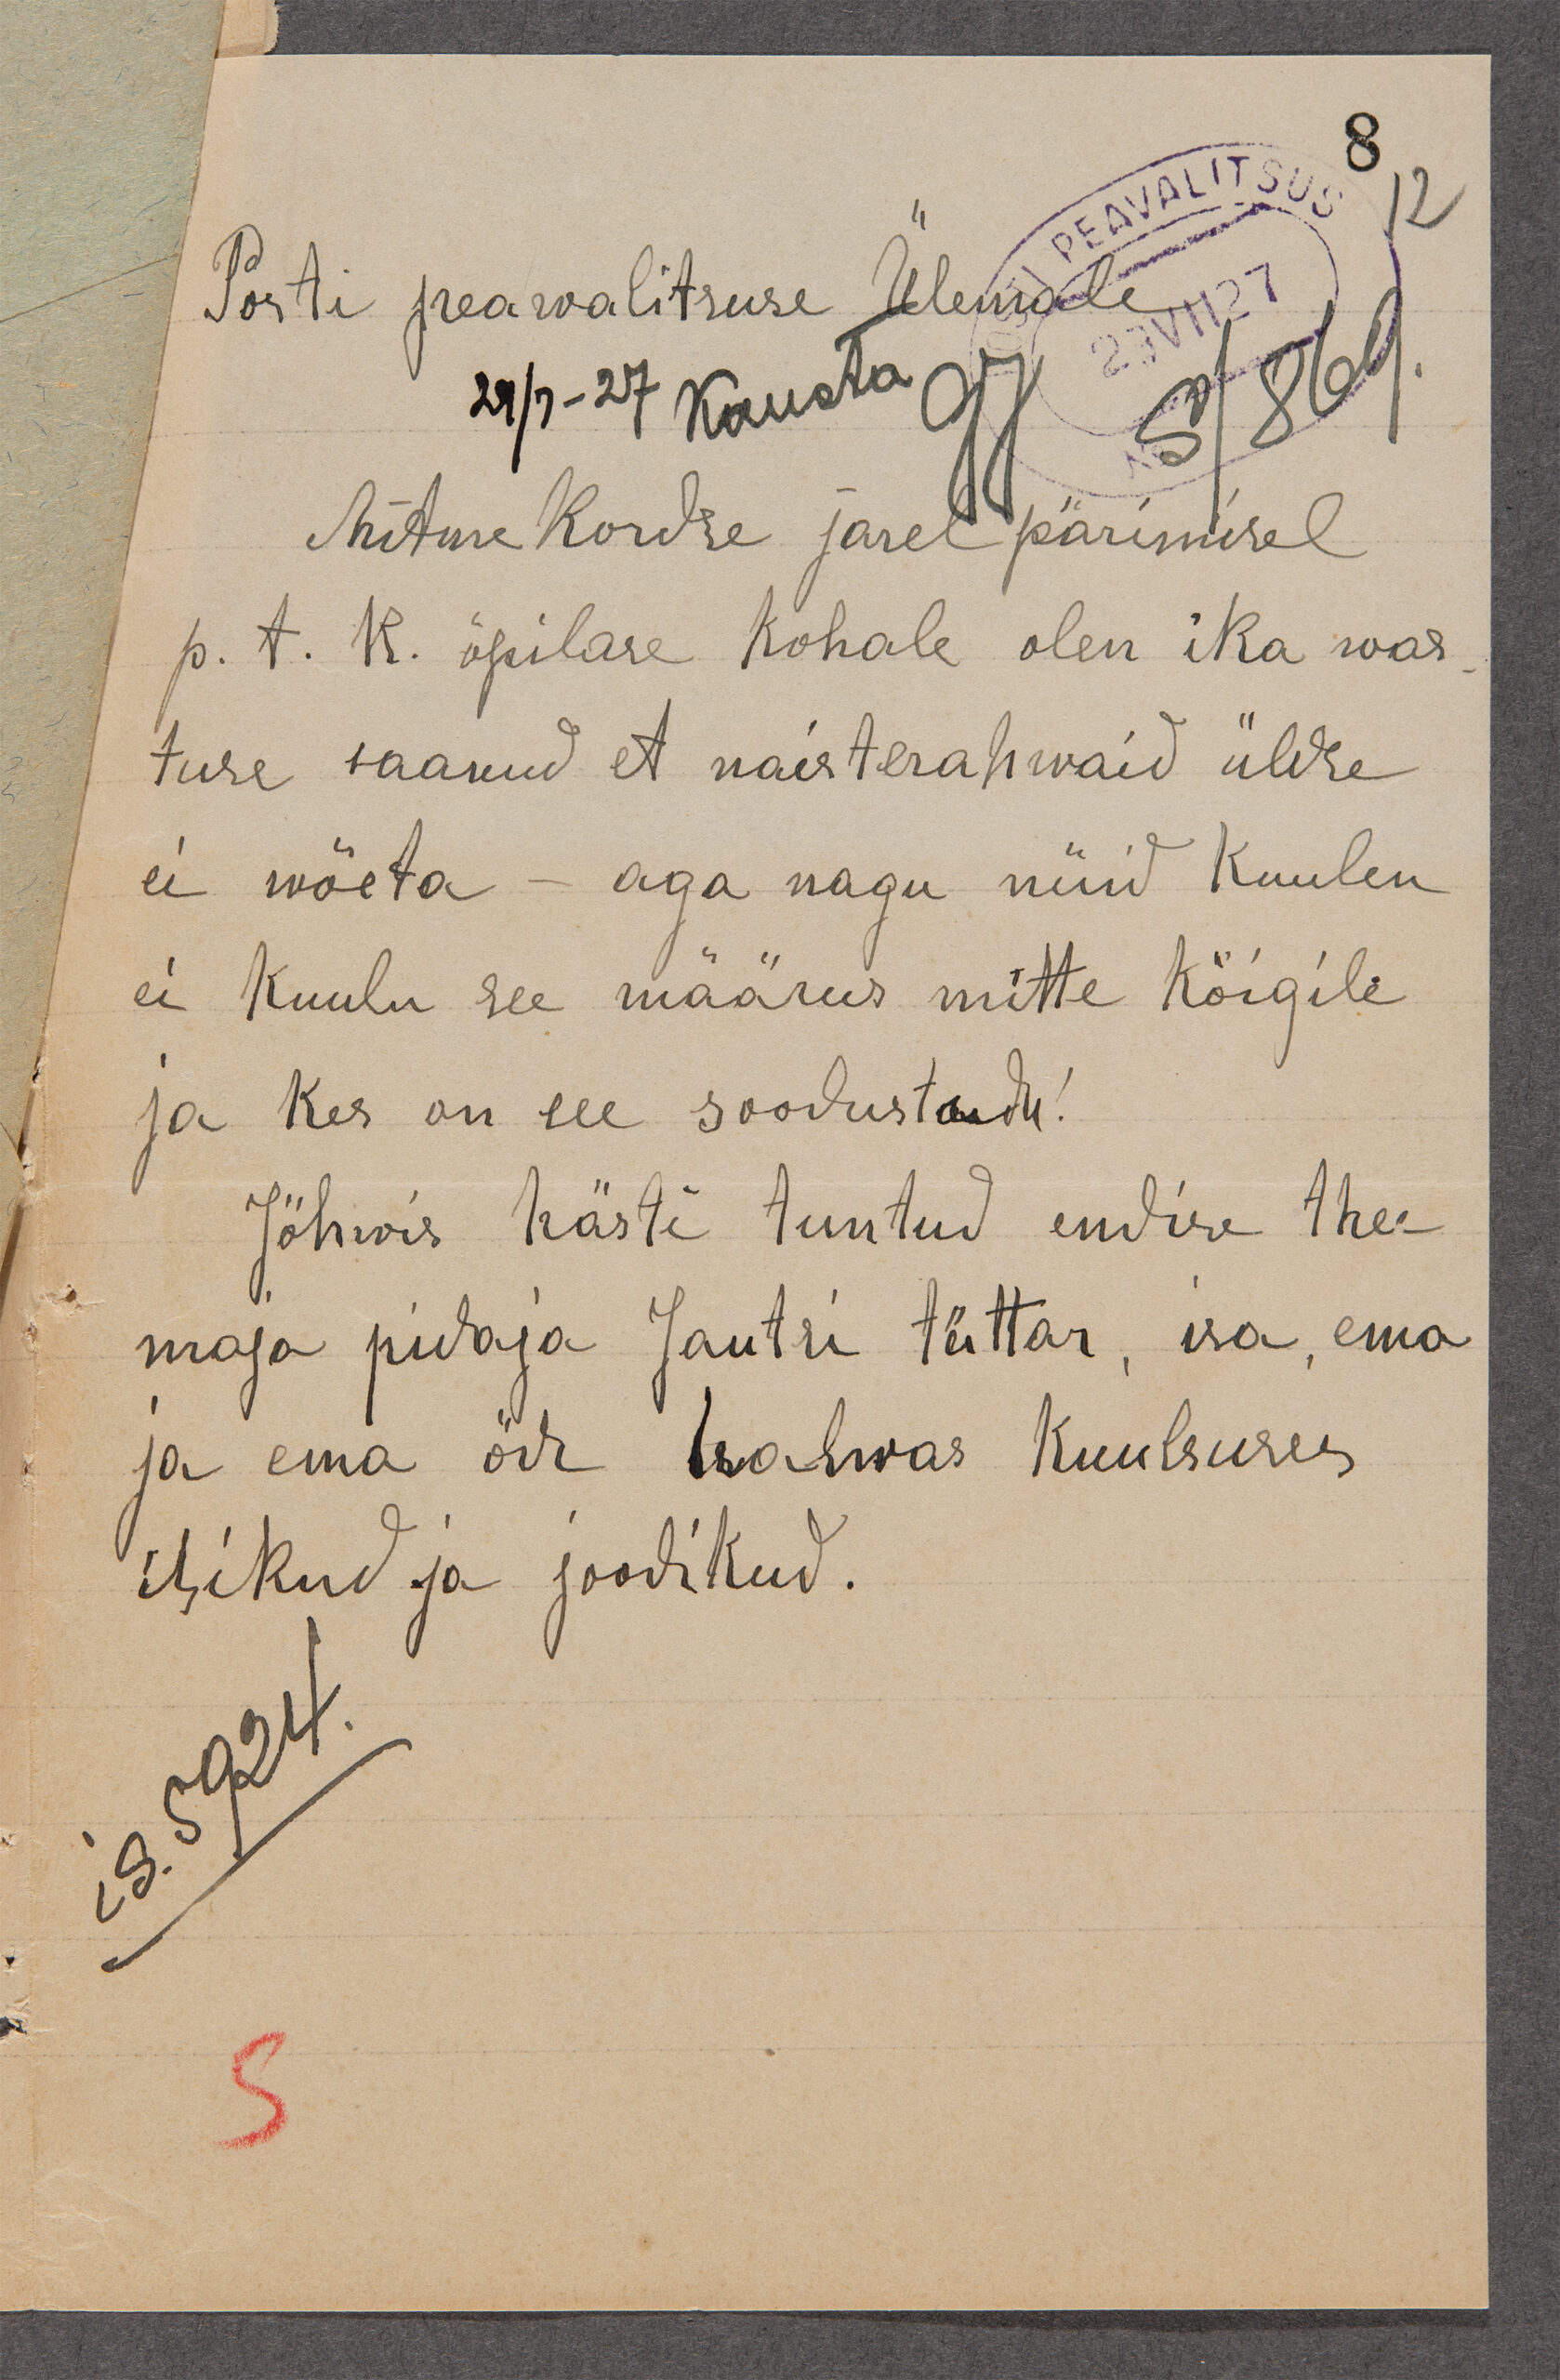 8
12
POSTI PEAVALITSUS
Posti peawalitsuse Ülemale
23 VII 27
29/7-27 Kausta
S/869.
Mitme Kordse järel pärimisel
p. t. K. õpilase kohale olen ika was-
tuse saanud et naisterahwaid üldse
ei wõeta – aga nagu nüid kuulen
ei kuulu see määrus mitte kõigile
ja kes on see soodustandu!
Jõhwis hästi tuntud endise thee
maja pidaja Jautsi tüttar, isa, ema
ja ema õde halwas kuulsuses
isikud ja joodikud.
is. 5924.
S